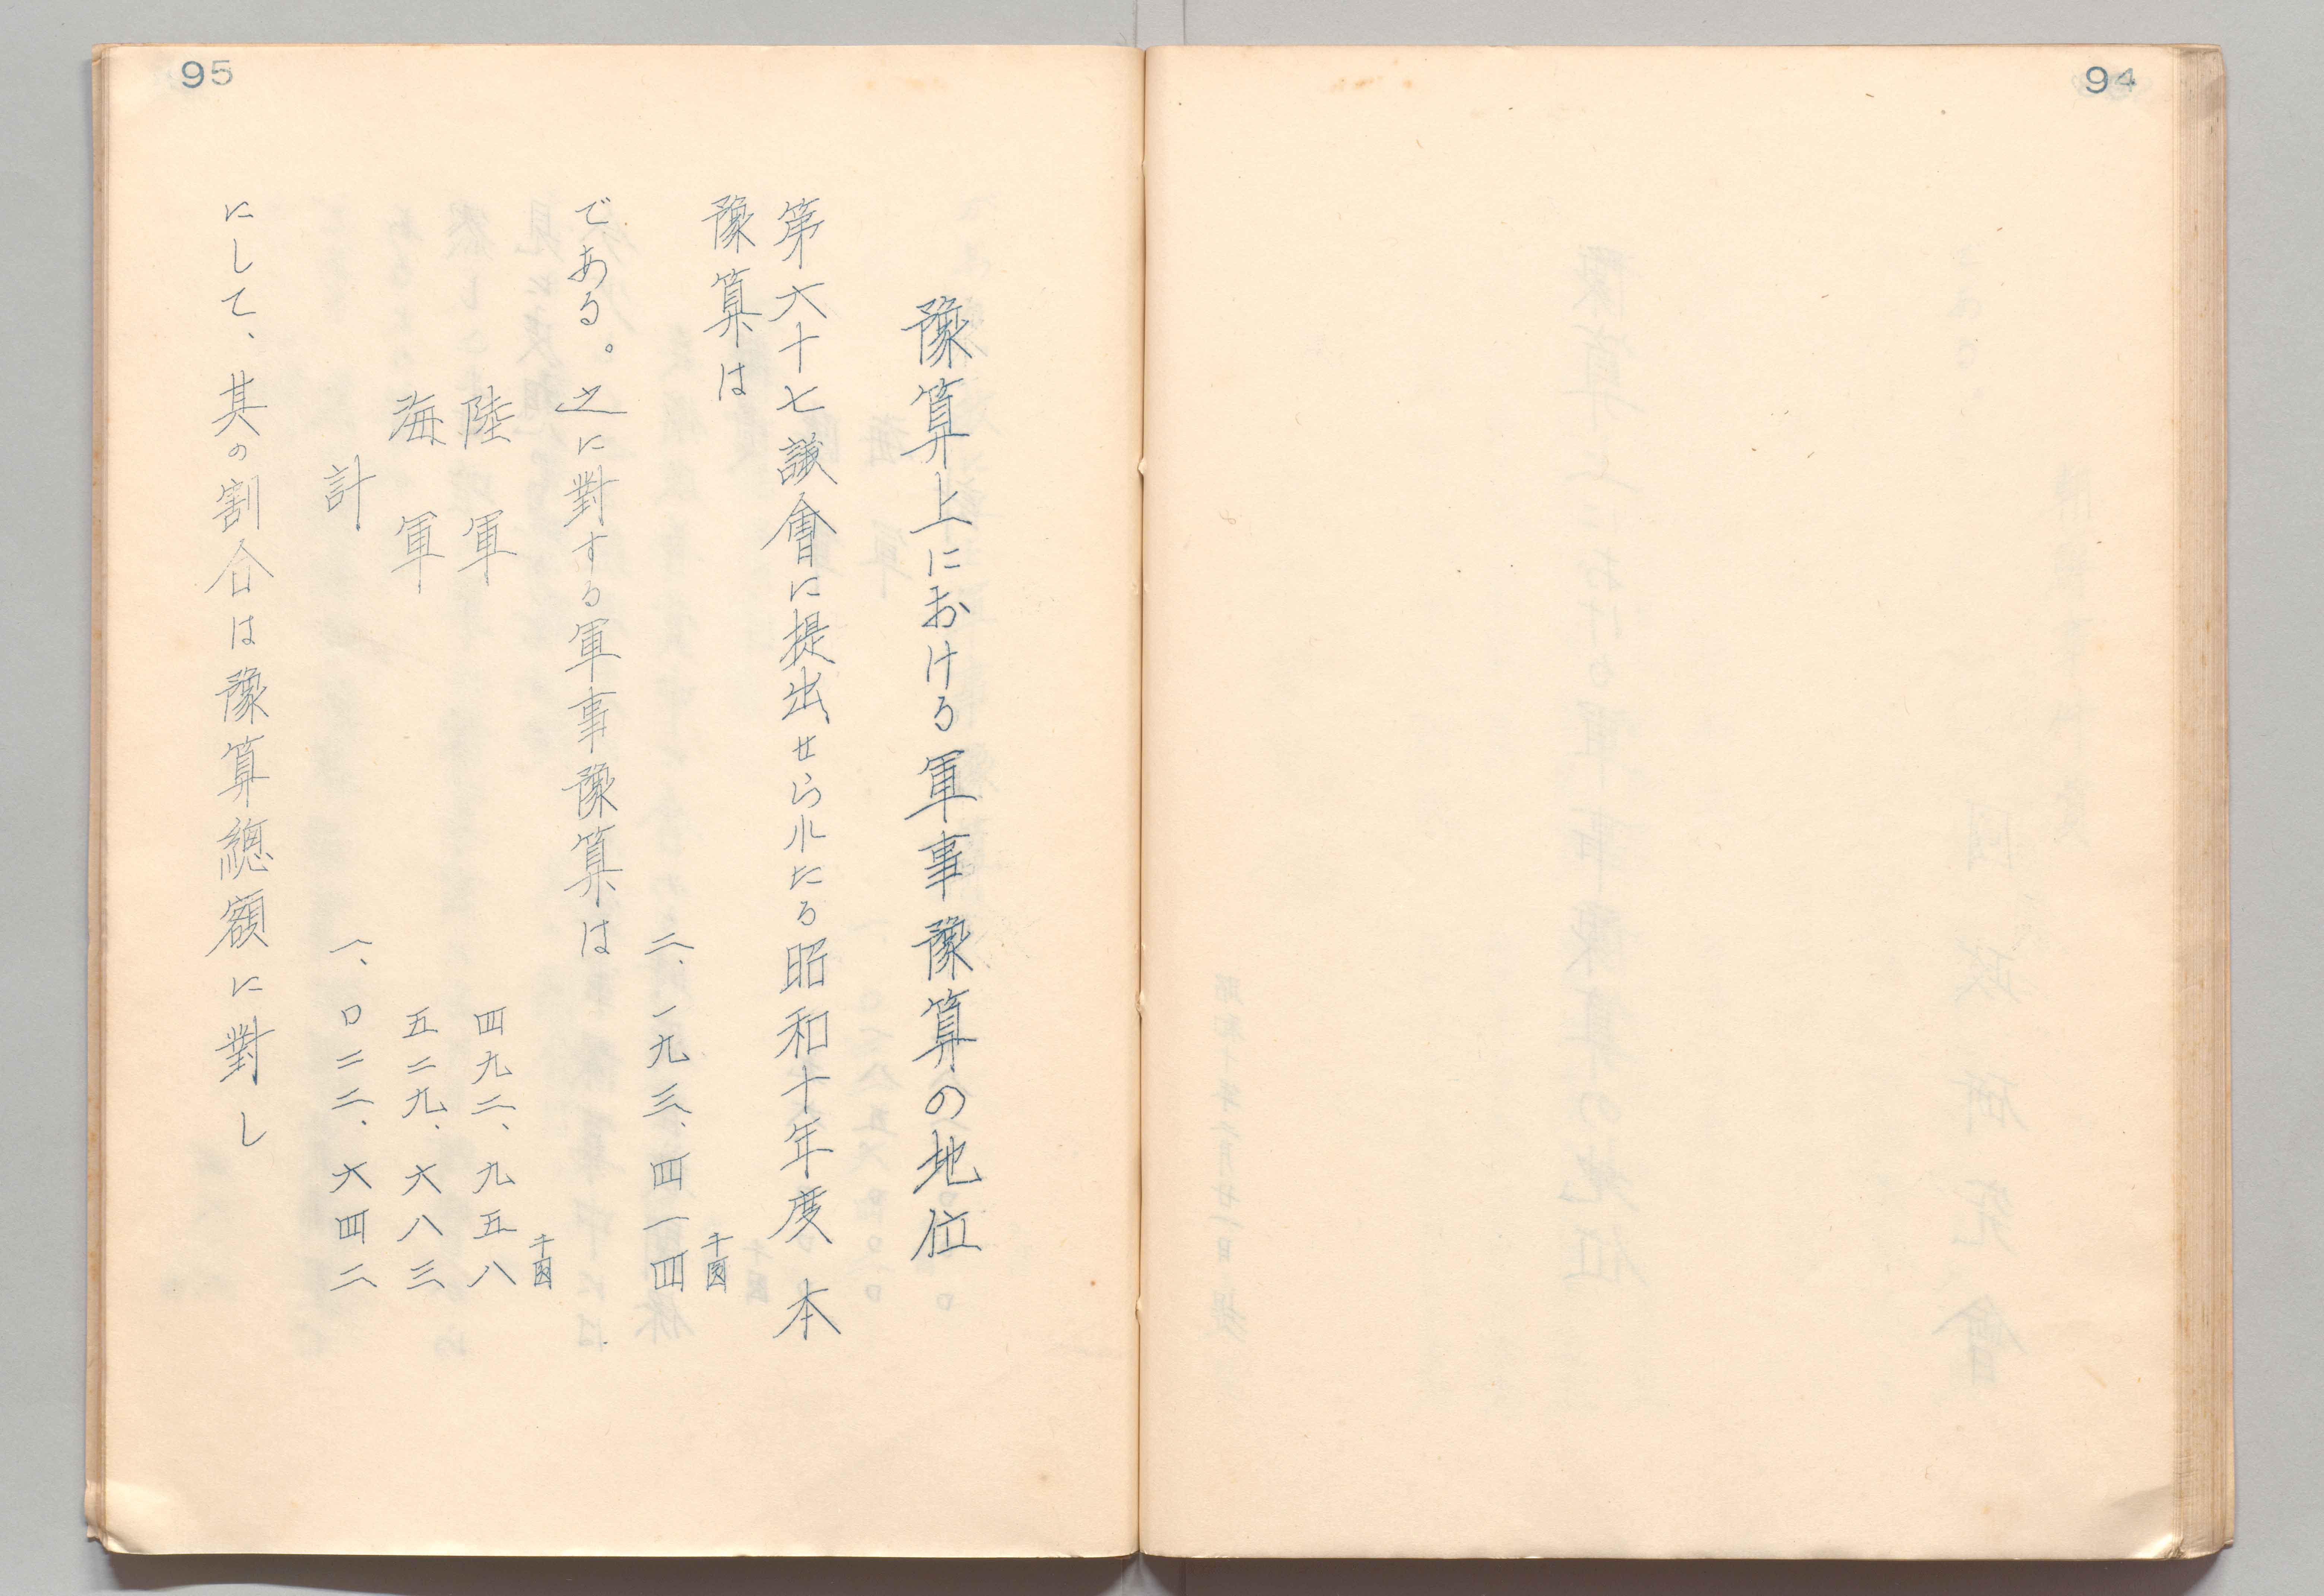 94
95
豫算上における軍事豫算の地位
第六十七議會に提出せられたる昭和十年度本
豫算は
千圓
二、一九三、四一四
である。之に對する軍事豫算は
千圓
陸軍 四九二、九五八
海軍 五二九、六八三
計 一、〇二二、六四二
にして、其の割合は豫算總額に對し